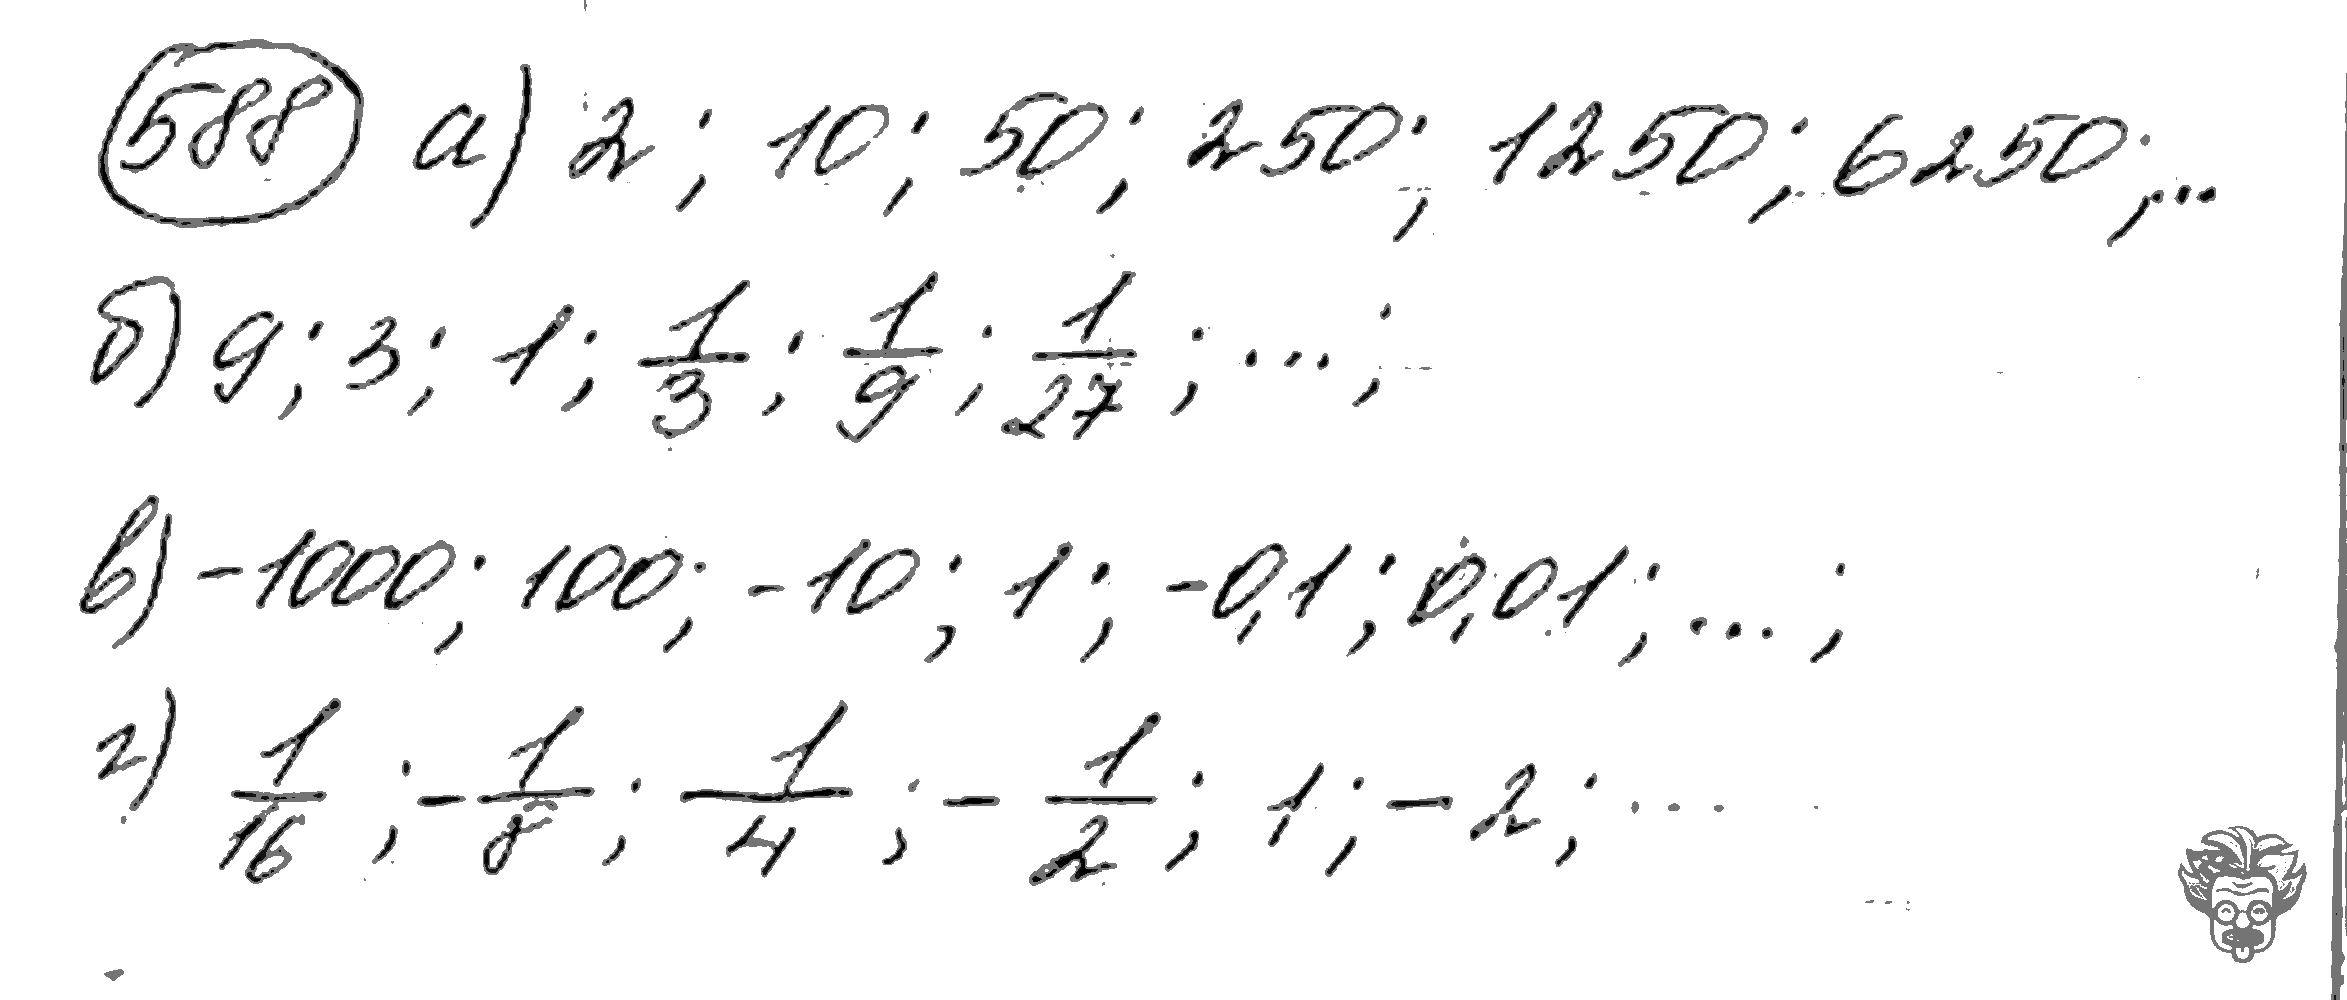 588 а) 2; 10; 50; 250; 1250; 6250;...
б) 9; 3; 1; 1/3; 1/9; 1/27; ...;
в) -1000; 100; -10; 1; -0,1; 0,01; ...;
г) 1/16; -1/8; 1/4; -1/2; 1; -2; ...